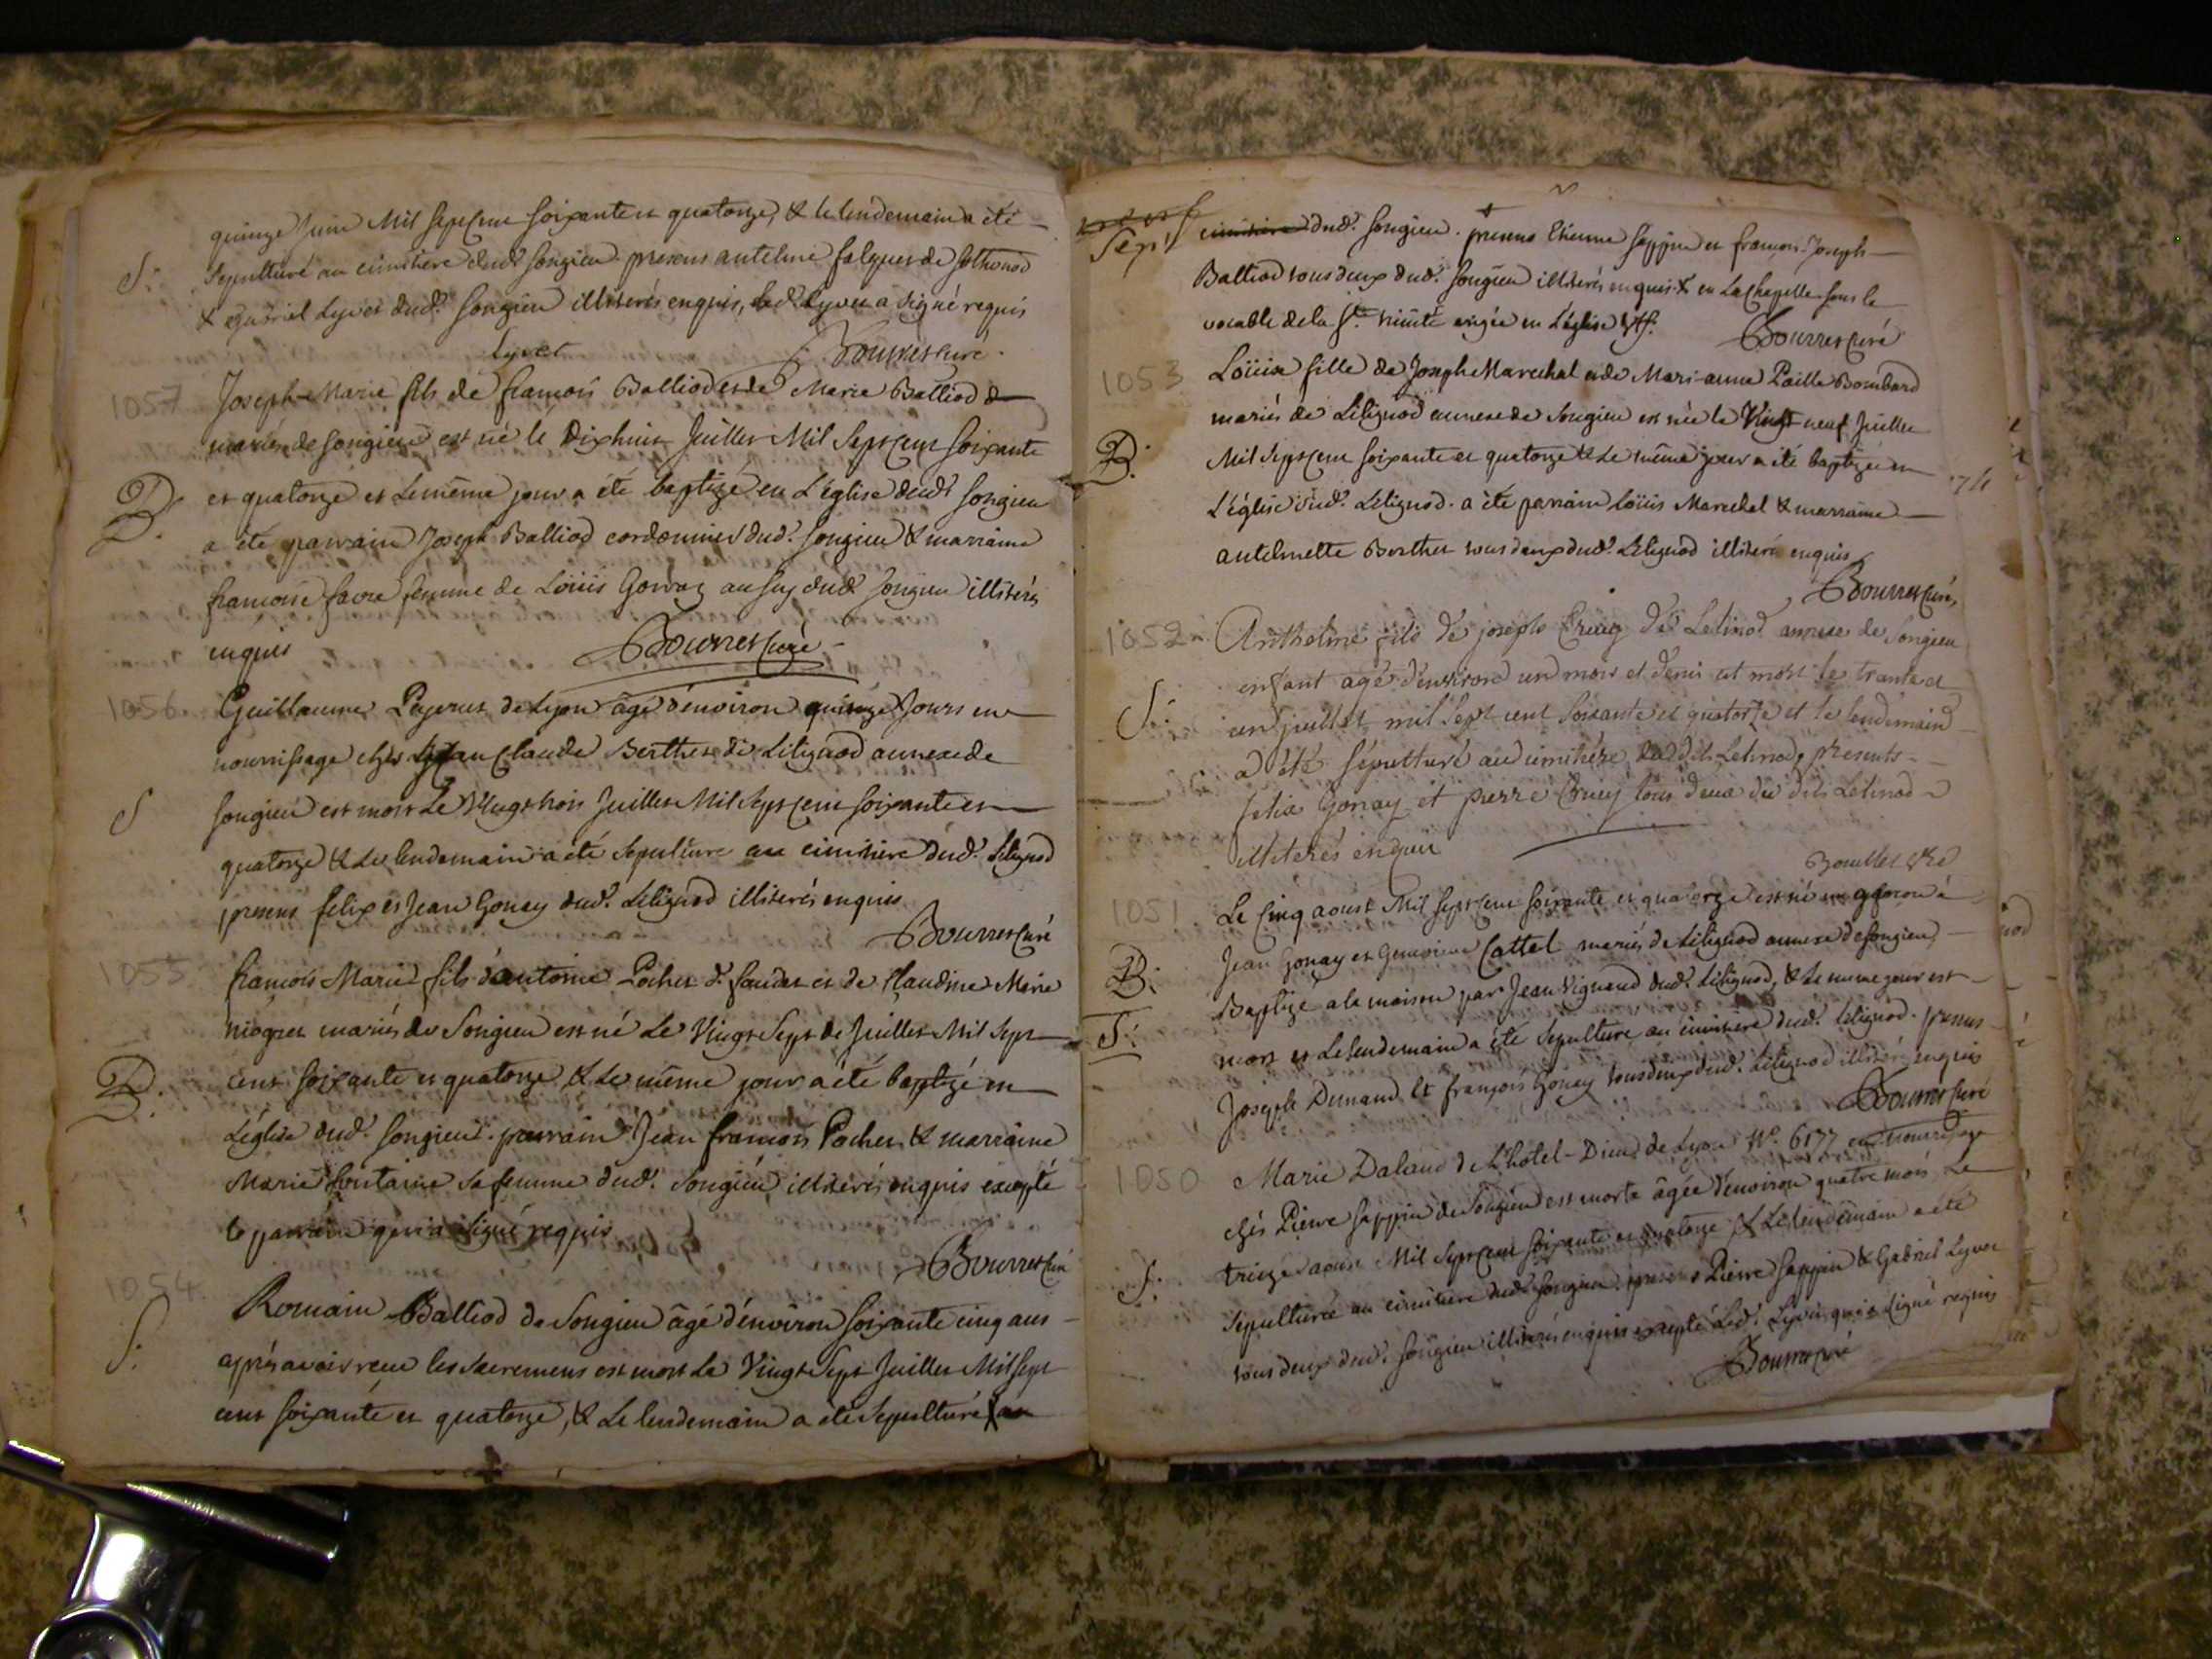 quinze Juin Mil Sept Cent Soixante et quatorze, & le lendemain a été
S: Sepulturé au cimitiere dud Songieu presens antelme falques de Sothonod
& Gabriel Lyvet dud. Songieu illiterés enquis, led. Lyvet a Signé requis
Lyvet Bourret Curé
1057 Joseph-Marie fils de francois Balliod et de Marie Balliod
mariés de Songieu est né le Dixhuit Juillet Mil Sept Cent Soixante
B. et quatorze et Le même jour a été baptizé en L'église dud Songieu
a été parrain Joseph Balliod cordonnier dud. Songieu & marraine
francoise favre femme de Loüis Gonraz dud Songieu illiterés
enquis Bourret Curé
1056. Guillaume de Lyon âgé d'environ quinze Jours en
nourrissage chés Jean Claude Berthet de Lilignod annexe de
S Songieu est mort Le Vingt trois Juillet Mil Sept Cent Soixante et
quatorze & Le lendemain a été Sepulturé au cimitiere dud. Lilignod
presens felix et Jean Gonay dud. Lilignod illiterés enquis
Bourret Curé
1055 francois Marie fils d'antoine Pochet et de Claudine Marie
mariés de Songieu est né Le Vingt Sept de Juillet Mil Sept
B. cent Soixante et quatorze & Le même jour a été baptizé en
L'église dud. Songieu. parrain Jean francois Pochet & marraine
Marie fontaine Sa femme dud. Songieu illiterés enquis excepté
le parrain qui a Signé requis
Bourret Curé
1054. Romain Balliod de Songieu âgé d'environ Soixante cinq ans
S. après avoir receu les Sacremens est mort Le Vingt Sept Juillet Mil Sept
cent Soixante et quatorze, & Le lendemain a été Sepulturé au
cimitiere dud. Songieu. presens Etienne Sappin et francois-Joseph
Balliod tous deux dud. Songieu illiterés enquis & en La Chapelle Sous le
vocable de la Ste. érigée en L'église
Bourret Curé
1053 Loüise fille de Joseph Marechal et de Mari-anne Paille Bombard
mariés de Lilignod annexe de Songieu est née le Vingt neuf Juillet
B. Mil Sept Cent Soixante et quatorze & Le même jour a été baptizée en
L'église dud. Lilignod. a été parrain Loüis Marechal & marraine
antelmette Berthet tous deux dud. Lilignod illiterés enquis
Bourret Curé
1052 Anthelme fils de joseph Cruey de Lelinod annexe de Songieu
enfant agé d'environ un mois et demi est mort le trante et
S: un juillet mil Sept cent Soixante et quatorze et le lendemain
a été sépulturé au cimitière du dit Lelinod, presents
felix Gonay et pierre Cruey tous deux du dit Lelinod
illiterés enquis
1051 Le Cinq aoust Mil Sept Cent Soixante et quatorze est né un garcon à
B: Jean Gonay et Genevieve Cattel mariés de Lilignod annexe de Songieu,
Baptizé a la maison par Jean Vignaud dud. Lilignod, & Le meme jour est
S: mort et Le lendemain a été Sepulturé au cimitiere dud. Lilignod. presens
Joseph Dunand et francois Gonay tous deux dud. Lilignod illiterés enquis
Bourret Curé
1050 Marie Daland de L'hotel-Dieu de Lyon No. 6177 en nourrissage
chés Pierre Sappin de Songieu est morte âgée d'environ quatre mois Le
S: treize aoust Mil Sept Cent Soixante et quatorze & Le lendemain a été
Sepulturée au cimitiere dud. Songieu. presens Pierre Sappin & Gabriel Lyvet
tous deux dud. Songieu illiterés enquis excepté Led. Lyvet qui a Signé requis
Bourret Curé